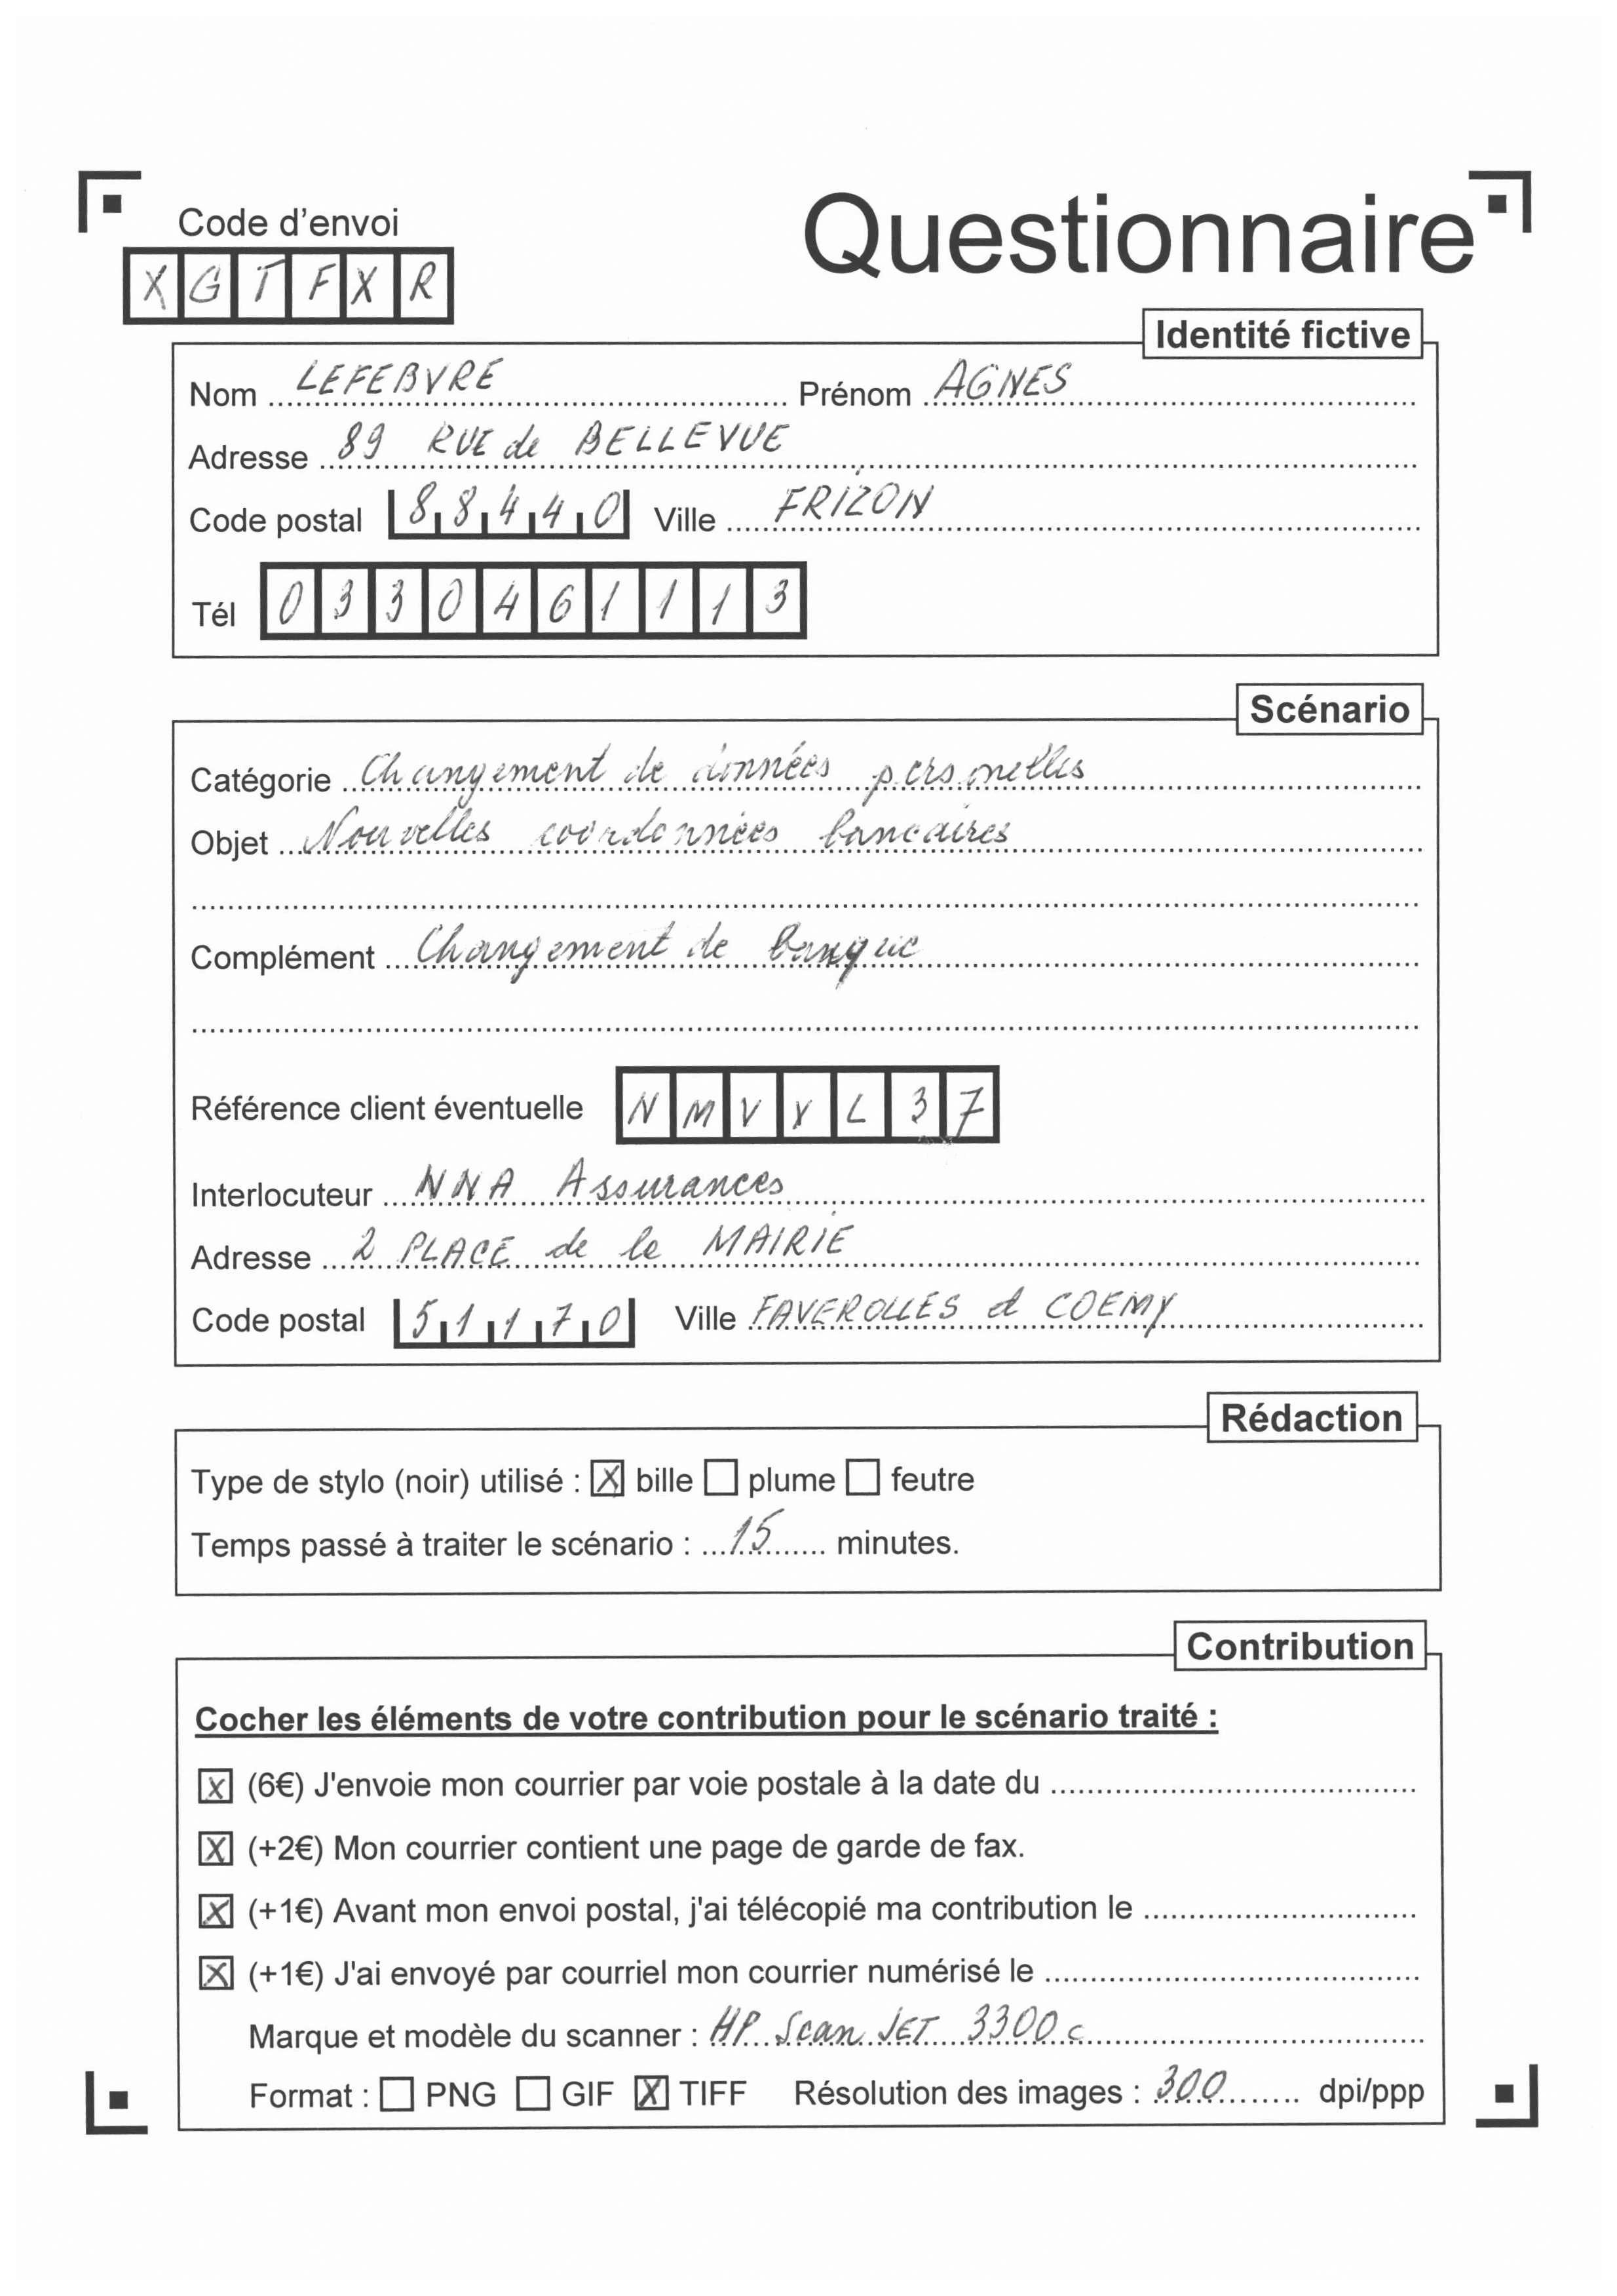 Code d'envoi
Questionnaire
XGTFXR
Identité fictive
Nom LEFEBVRE Prénom AGNES
Adresse 89 RUE de BELLEVUE
Code postal 88440 Ville FRIZON
Tél 0330461113
Scénario
Catégorie Changement de données personelles
Objet Nouvelles coordonnées bancaires
Complément Changement de banque
Référence client éventuelle NMVXL37
Interlocuteur NNA Assurances
Adresse 2 PLACE de la MAIRIE
Code postal 51170 Ville FAVEROLLES et COEMY
Rédaction
Type de stylo (noir) utilisé : ☒ bille ☐ plume ☐ feutre
Temps passé à traiter le scénario : 15 minutes.
Contribution
Cocher les éléments de votre contribution pour le scénario traité :
☒ (6€) J'envoie mon courrier par voie postale à la date du
☒ (+2€) Mon courrier contient une page de garde de fax.
☒ (+1€) Avant mon envoi postal, j'ai télécopié ma contribution le
☒ (+1€) J'ai envoyé par courriel mon courrier numérisé le
Marque et modèle du scanner : HP Scan JET 3300 c
Format : ☐ PNG ☐ GIF ☒ TIFF Résolution des images : 300 dpi/ppp